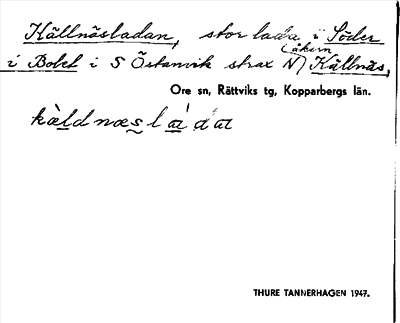 Källnäsladan, stor lada i Söder
åkern
i Bolet i S Östanvik strax N) Källnäs,
Ore sn, Rättviks tg, Kopparbergs län.
kàldnæslàda
THURE TANNERHAGEN 1947.